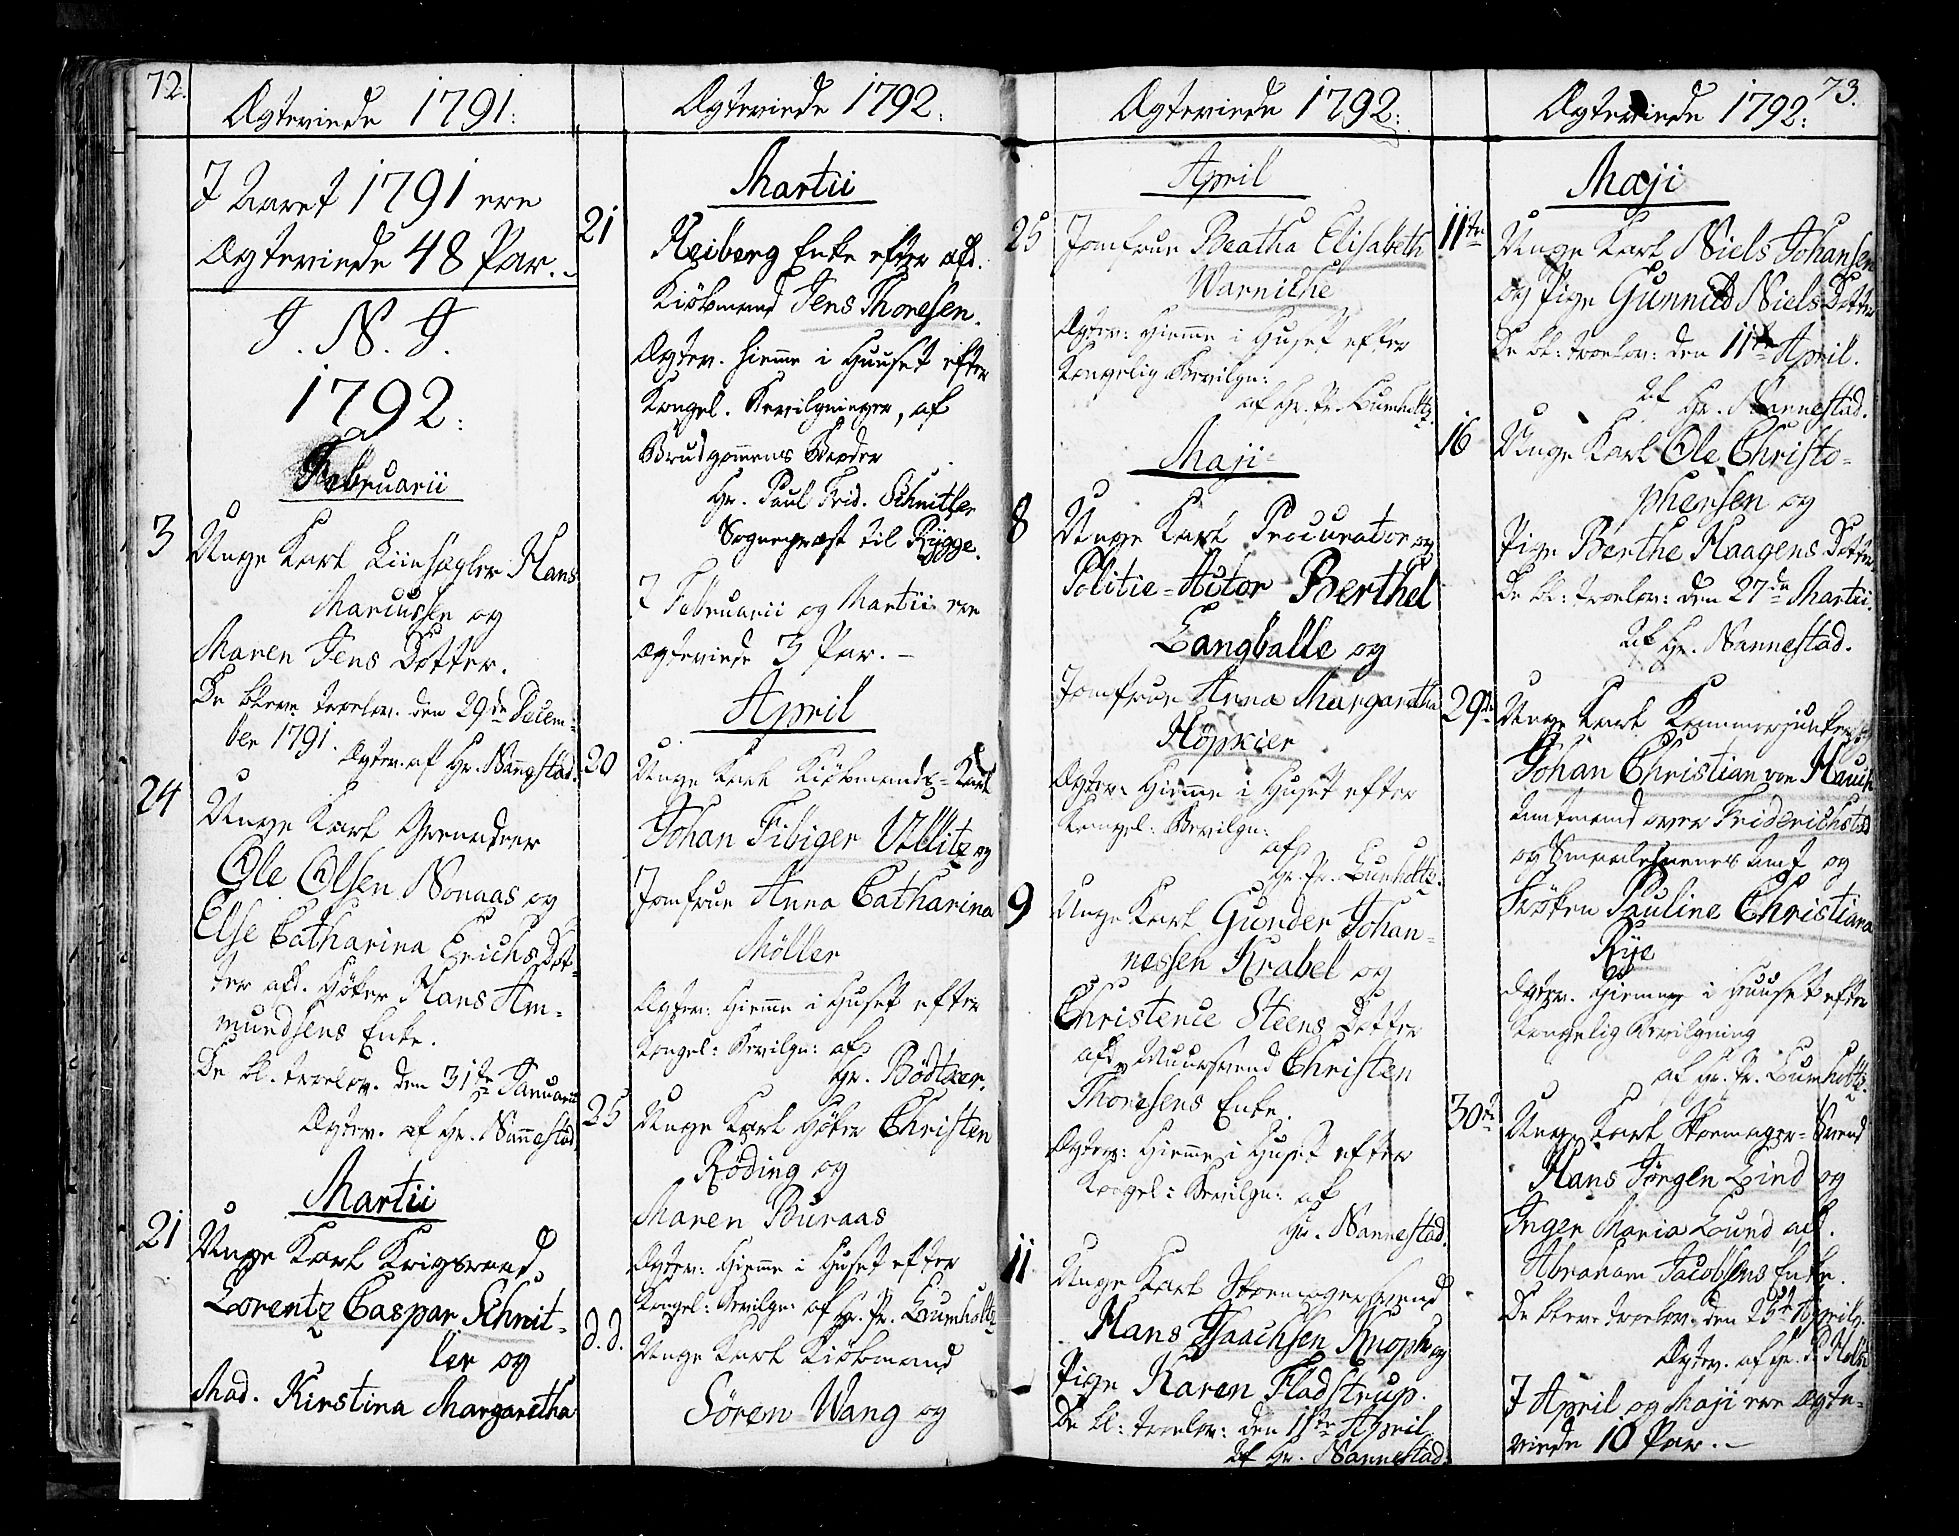 72.
Ægteviede 1791:
I Aaret 1791 ere
Ægteviede 48 Par. -
I. N. J.
1792.
Februarii
3 Unge Karl Liinhægler Hans
Marcussen og
Maren Jens Dotter.
De bleve troelov. den 29de Decem-
ber 1791.
Ægtev. af Hr. Nannestad.
24 Unge Karl
Ole Olsen Nonaas og
Else Catharina Erichs Dot-
ter afd. Høker Hans Am-
mundsens Enke.
De bl. troelov. den 31te Januarii
Ægtev. af Hr. Nannestad.
Martii
21 Unge Karl Krigsraad
Lorentz Caspar Schnit-
ler og
Mad. Kirstina Margaretha
Ægteviede 1792.
Martii
21
Heiberg Enke efter afd.
Kiöbmand Jens Thoresen.
Ægtev. hiemme i Huuset efter
Kongel. Bevilgninger, af
Brudgommens Broder
Hr. Paul Frid. Schnitler
Sognepræst til Rygge.
I Februarii og Martii ere
ægteviede 3 Par. -
April
20 Unge Karl Kiöbmands-Karl
Johan Fibiger Ullitz og
Jomfrue Anna Catharina
Möller
Ægtev: hiemme i Huset efter
Kongel: Bevilgn: af
Hr. Bödtker.
25 Unge Karl Höker Christen
Røding og
Maren Buraas
Ægtev: hiemme i Huset efter
Kongel: Bevilgn: af Hr. Pr. Lumholtz
d.d. Unge Karl Kiöbmand
Sören Wang og
Ægteviede 1792.
April
25 Jomfrue Beatha Elisabeth
Warniche
Ægtev: hiemme i Huset efter
Kongelig Bevilgn:
af Hr. Pr. Lumholtz.
Maji
8 Unge Karl Procurator og
Politie-Actor Berthel
Langballe og
Jomfrue Anna Margaretha
Höpner
Ægtev: hiemme i Huset efter
Kongel: Bevilgn:
af
Hr. Pr. Lumholtz.
9 Unge Karl Gunder Johan-
nessen Krabel og
Christence Steens Dotter
afd. Muursvend Christen
Thoresens Enke.
Ægtev: hiemme i Huset efter
Kongel: Bevilgn: af
Hr. Nannestad.
11 Unge Karl Skomagersvend
Hans Isaachsen Knoph og
Pige Karen Fladstrup.
De bl: troelov: den 11te April
Af Hr. Nannestad.
73.
Ægteviede 1792.
Maji
11te Unge Karl Niels Johansen
og Pige Gunnild Niels Dotter
De bl: troelov: den 11te April.
Af Hr. Nannestad.
16 Unge Karl Ole Christo-
phersen og
Pige Berthe Haagens Dotter
De bl: troelov: den 27de Martii.
Af Hr. Nannestad.
29de Unge Karl Kammerjunker
Johan Christian von Hauch
Amtmand over Friderichstad
og Smaalehnenes Amt og
Frøken Pauline Christiana
Rye
Ægtev. hiemme i Huuset efter
Kongelig Bevilgning
af Hr. Pr. Lumholtz.
30te Unge Karl Skomager-Svend
Hans Jørgen Lind og
Inger Maria Lund afd.
Abraham Jacobsens Enke.
De bleve troelov: den 25de April.
Ægtev. af Hr. P.
I April og Maji ere Ægte-
viede 10 Par. -